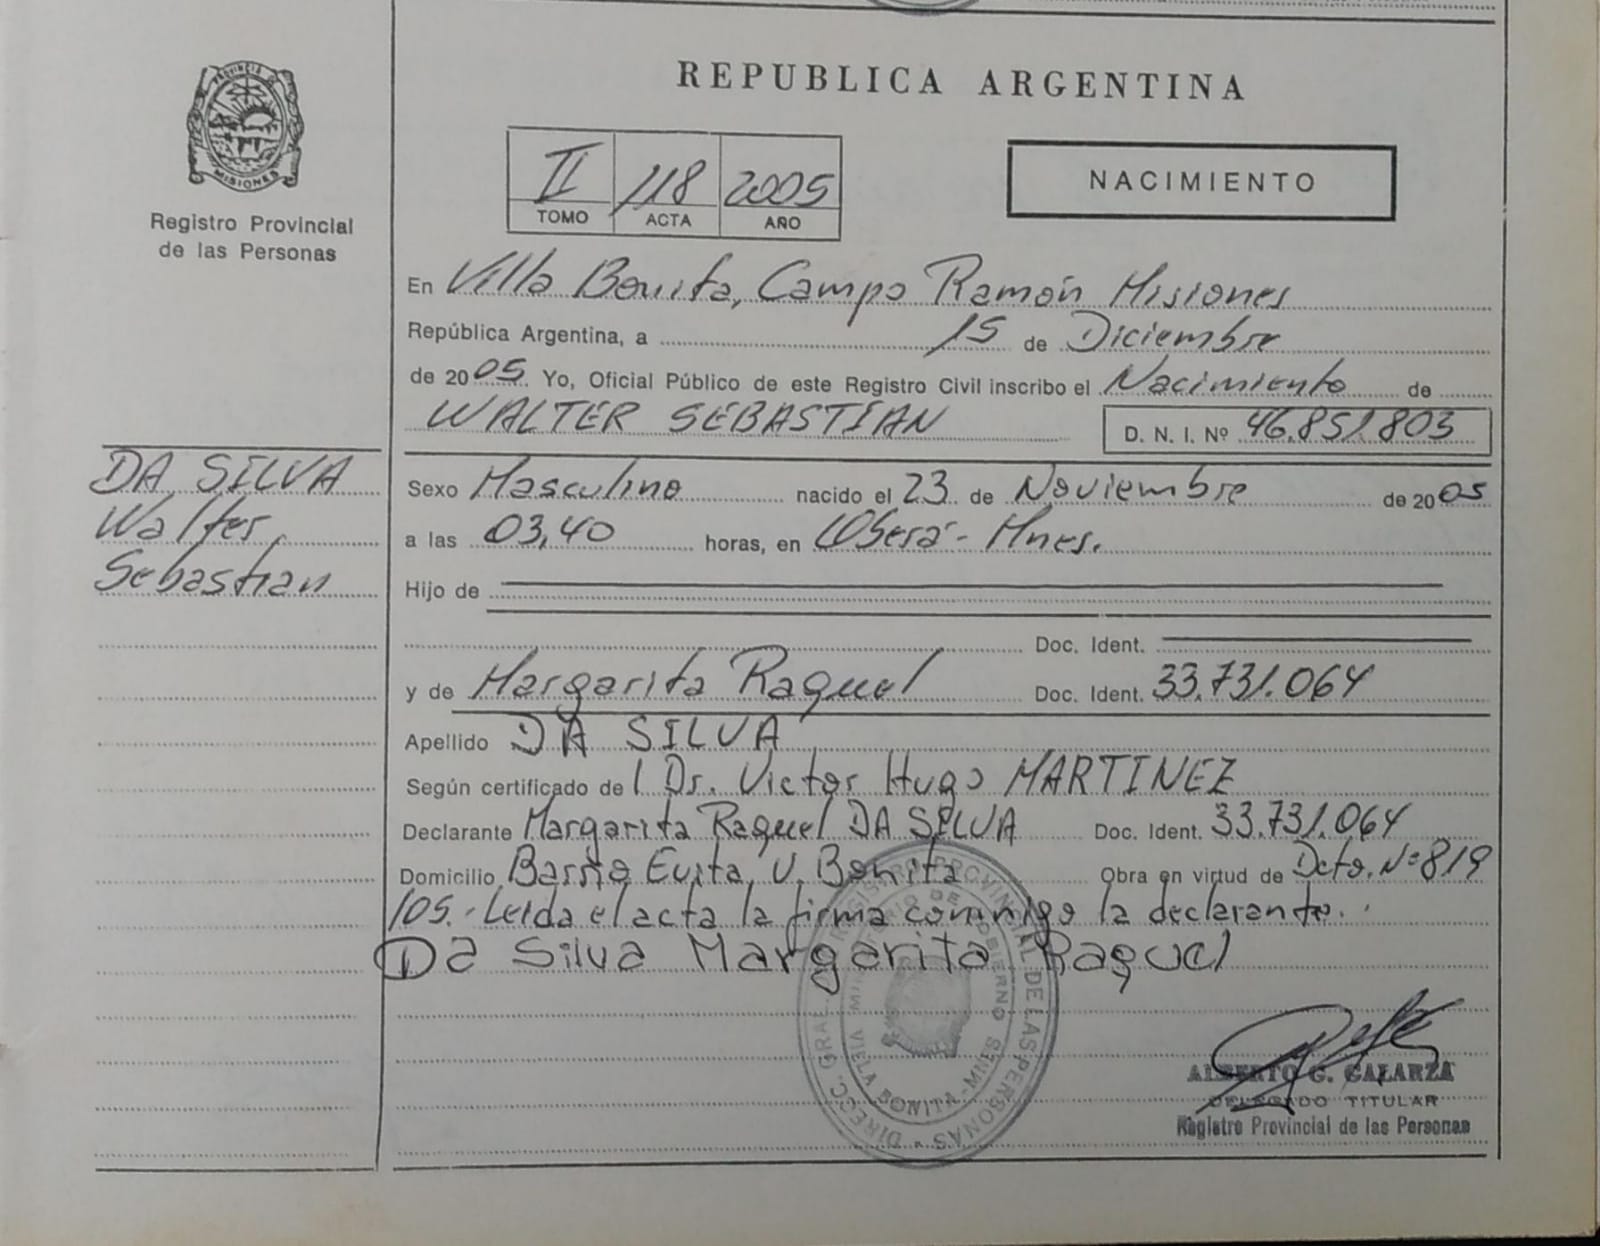 REPUBLICA ARGENTINA
PROVINCIA DE
MISIONES
Registro Provincial
de las Personas
II 118 2005
TOMO ACTA AÑO
NACIMIENTO
En Villa Bonita, Campo Ramón Misiones
República Argentina, a 15 de Diciembre
de 2005 Yo, Oficial Público de este Registro Civil inscribo el Nacimiento de
WALTER SEBASTIAN D. N. I. Nº 46.851.803
DA SILVA
Walter
Sebastian
Sexo Masculino nacido el 23 de Noviembre de 2005
a las 03,40 horas, en Oberá - Mnes.
Hijo de
Doc. Ident.
y de Margarita Raquel Doc. Ident. 33.731.064
Apellido DA SILVA
Según certificado de l Dr. Victor Hugo MARTINEZ
Declarante Margarita Raquel DA SILVA Doc. Ident. 33.731.064
Domicilio Barrio Evita, V. Bonita Obra en virtud de Dcto. Nº 819
/05.- Leida el acta la firma conmigo la declarante.
Da Silva Margarita Raquel
DIRECC. GRAL. REGISTRO PROVINCIAL DE LAS PERSONAS
MINISTERIO DE GOBIERNO
BONITA - MNES
ALBERTO G. GALARZA
DELEGADO TITULAR
Registro Provincial de las Personas